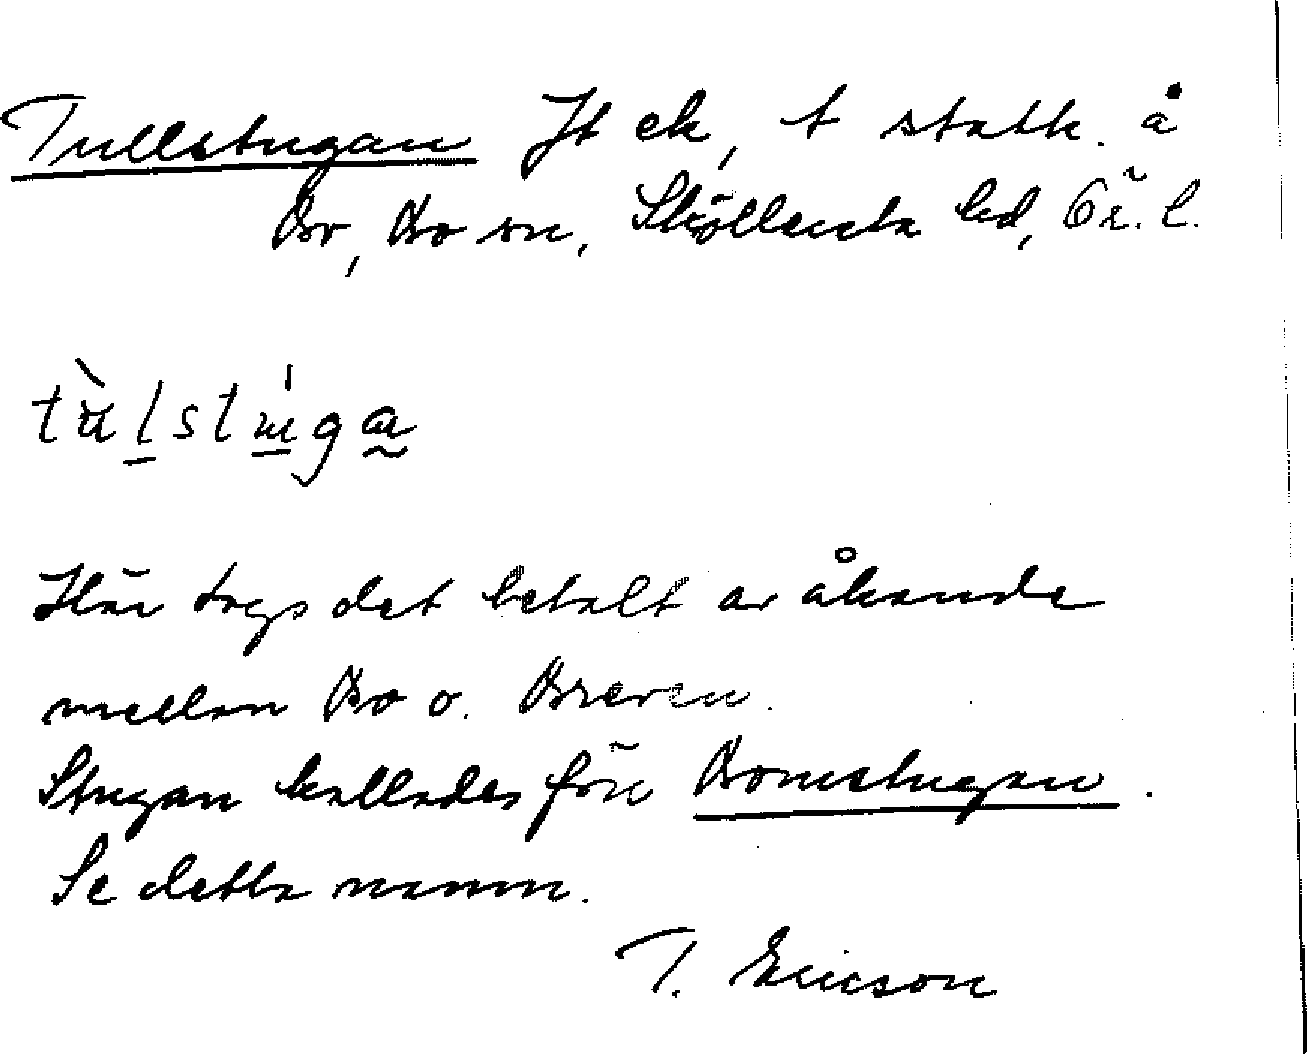 Tullstugan Jt ek, t statk. å
Bo, Bo sn, Sköllersta hd, Ör. l.
tùlstúga
Här togs det betalt av åkande
mellan Bo o. Breven.
Stugan kallades förr Bomstugan.
Se detta namn.
T. Ericson